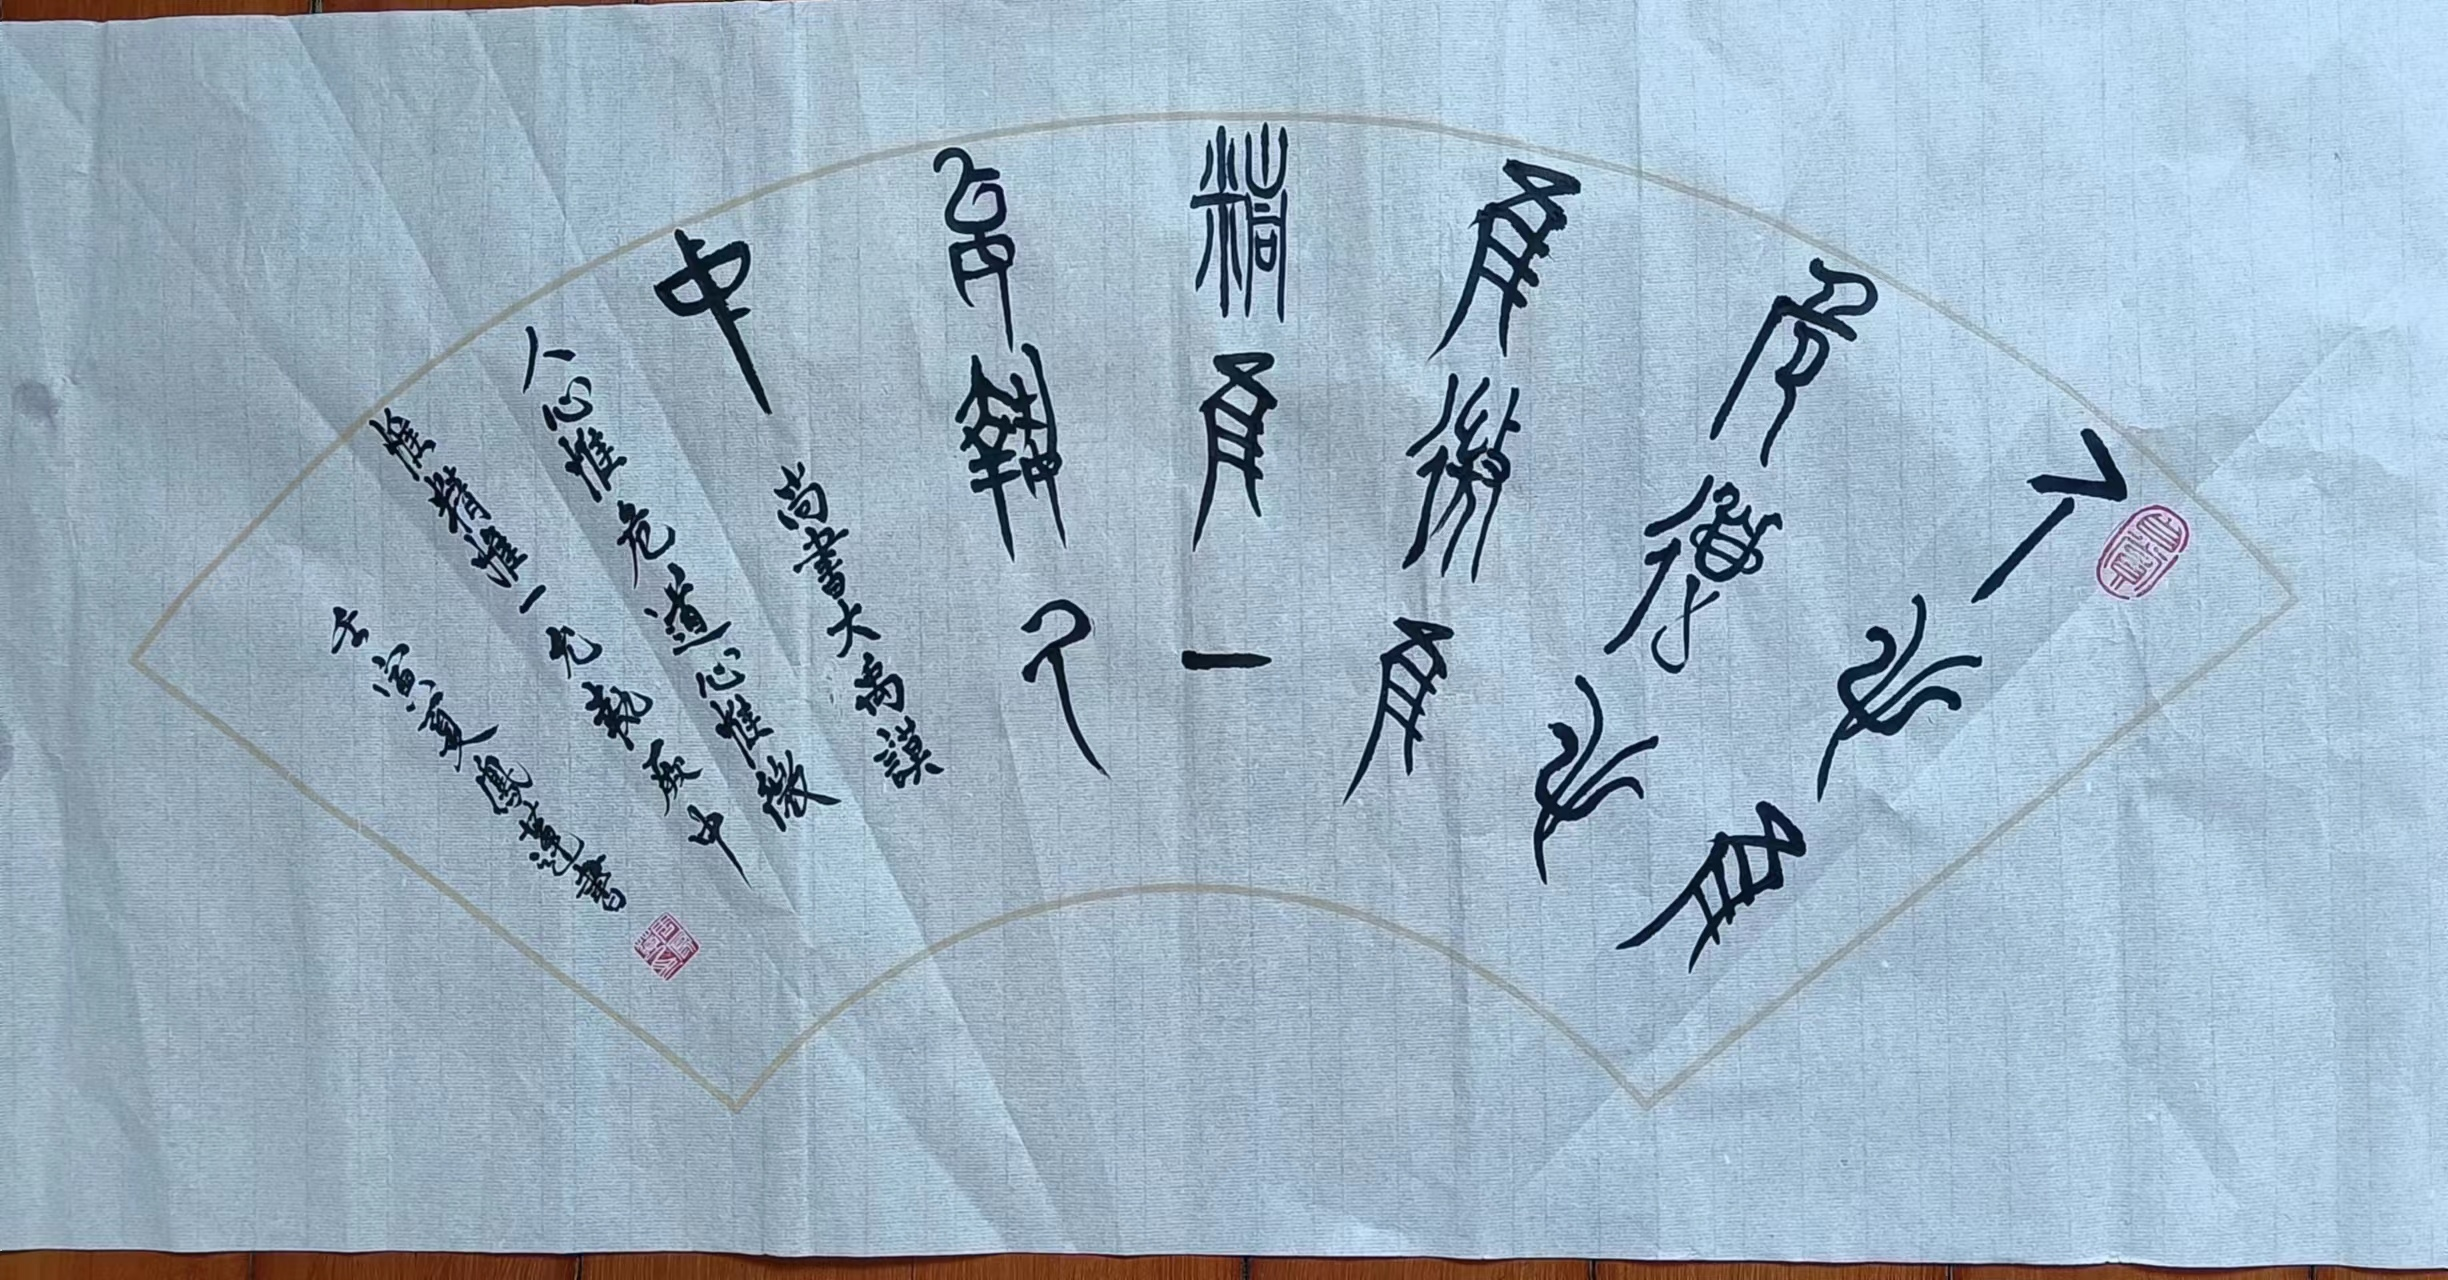 人心隹
危道心
隹微隹
精隹一
允執氒
中
尚書大禹謨
人心惟危道心惟微
惟精惟一允執厥中
壬寅夏鳳書